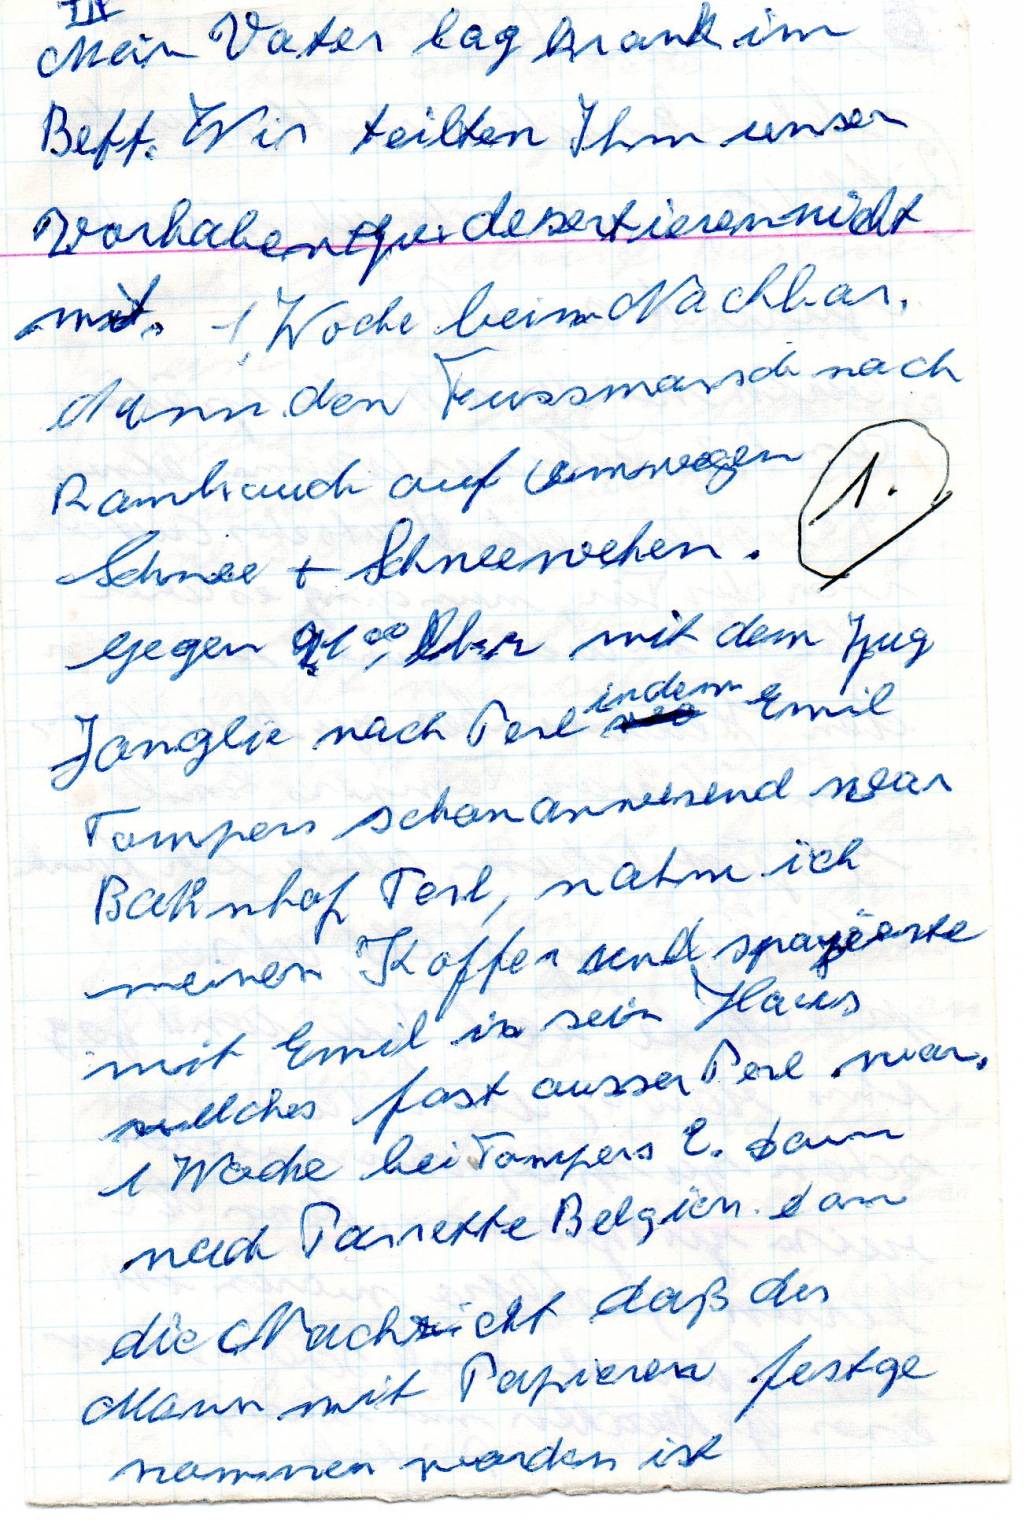 III
Mein Vater lag krank im
Bett. Wir teilten Ihm unser
Vorhaben zu desertieren nicht
mit. 1 Woche beim Nachbar.
dann den Fussmarsch nach
Rambruch auf umwegen
Schnee + Schneewehen. 1.
gegen Uhr mit dem Zug
Janglie nach Perl indem Emil
Tampers schon anwesend war
Bahnhof Perl, nahm ich
meinen Koffer und spazierte
mit Emil in sein Haus
welches fast ausser Perl war.
1 Woche bei Tampers E. dann
nach Parrette Belgien. dan
die Nachricht daß der
Mann mit Papieren festge
nommen worden ist